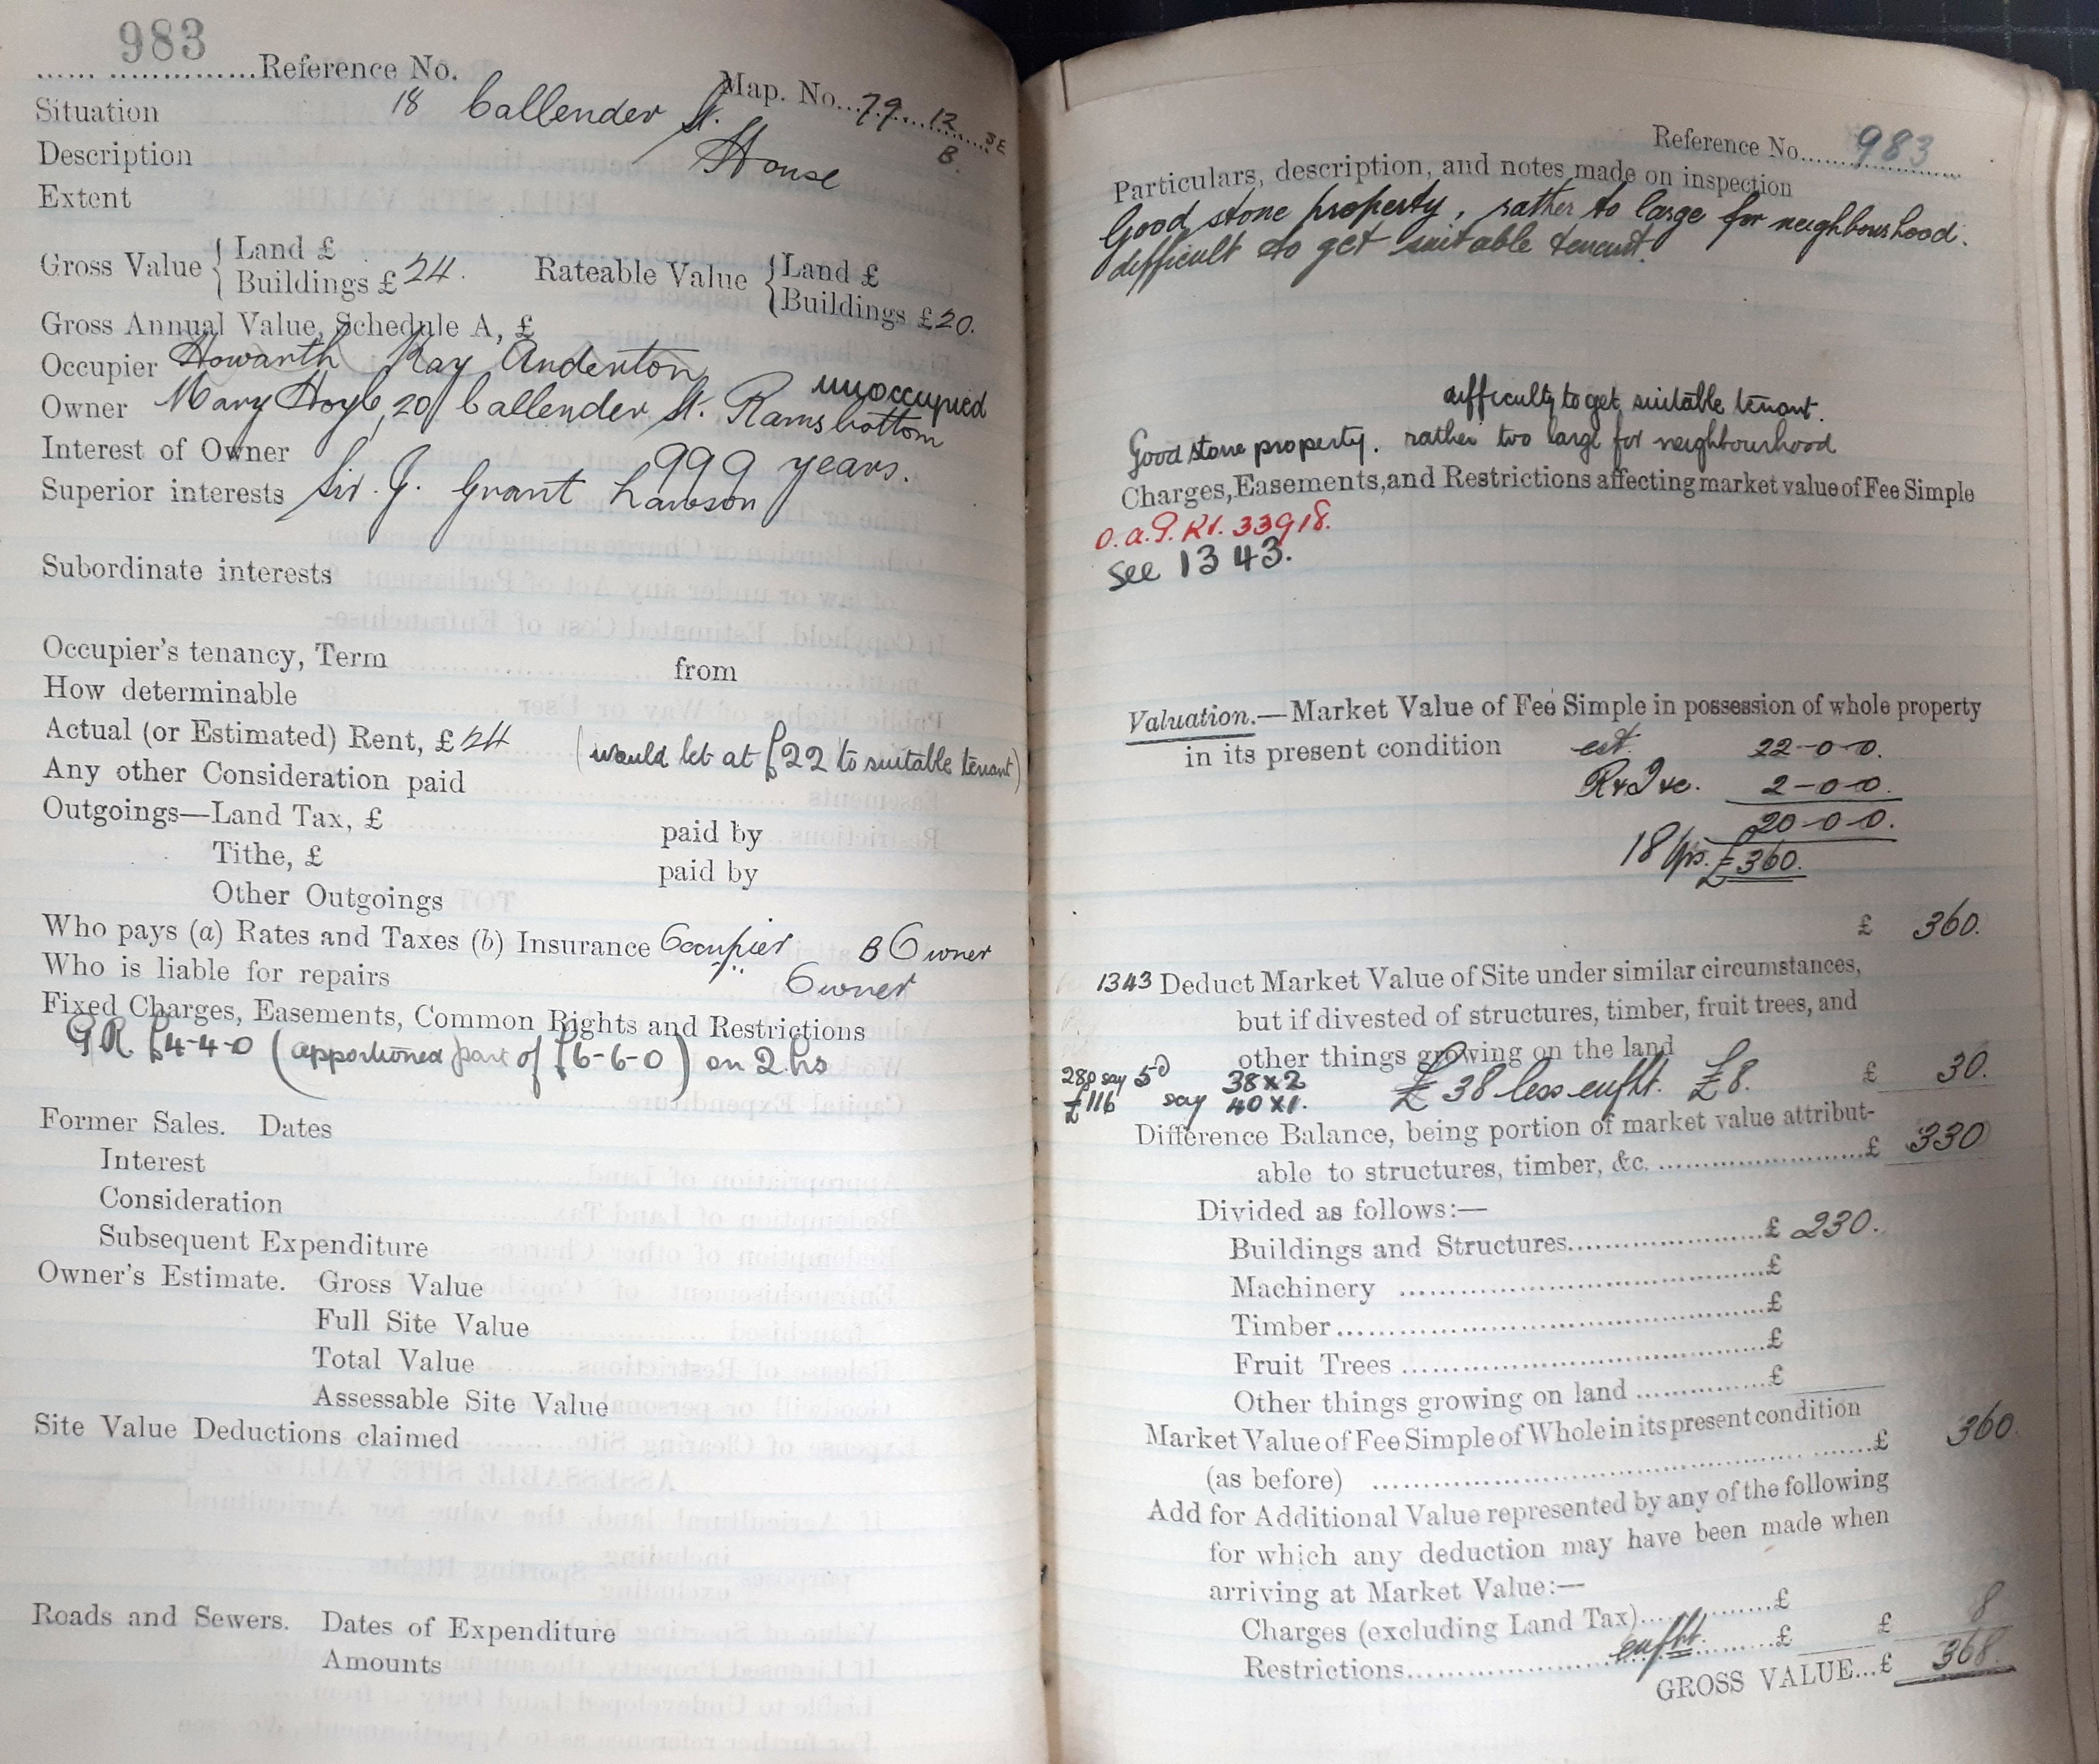 983
Reference No. Map. No. 79 12 SE
B.
Situation 18 Callender St.
Description House
Extent
Gross Value { Land £ Rateable Value { Land £
Buildings £ 24. Buildings £20.
Gross Annual Value, Schedule A, £
Occupier Howarth Kay Anderton unoccupied
Owner Mary Hoyle, 20 Callender St. Ramsbottom
Interest of Owner 999 years.
Superior interests Sir. J. Grant Lawson
Subordinate interests
Occupier's tenancy, Term from
How determinable
Actual (or Estimated) Rent, £ 24 (would let at £22 to suitable tenant)
Any other Consideration paid
Outgoings—Land Tax, £ paid by
Tithe, £ paid by
Other Outgoings
Who pays (a) Rates and Taxes (b) Insurance Occupier B Owner
Who is liable for repairs Owner
Fixed Charges, Easements, Common Rights and Restrictions
GR £4-4-0 (apportioned part of £6-6-0) on 2 hs
Former Sales. Dates
Interest
Consideration
Subsequent Expenditure
Owner's Estimate. Gross Value
Full Site Value
Total Value
Assessable Site Value
Site Value Deductions claimed
Roads and Sewers. Dates of Expenditure
Amounts
Reference No. 983
Particulars, description, and notes made on inspection
Good stone property, rather to large for neighbourhood.
difficult to get suitable tenant.
difficulty to get suitable tenant.
Good stone property. rather too large for neighbourhood
Charges, Easements, and Restrictions affecting market value of Fee Simple
33918.
See 1343.
Valuation.—Market Value of Fee Simple in possession of whole property
in its present condition est. 22-0-0.
2-0-0.
20-0-0.
18 yrs. £360.
£ 360.
1343 Deduct Market Value of Site under similar circumstances,
but if divested of structures, timber, fruit trees, and
other things growing on the land
280 say 5d 38x2 £38 less enfht. £8. £ 30.
£116 say 40x1.
Difference Balance, being portion of market value attribut-
able to structures, timber, &c. £ 330
Divided as follows:—
Buildings and Structures £ 230.
Machinery £
Timber £
Fruit Trees £
Other things growing on land £
Market Value of Fee Simple of Whole in its present condition
(as before) £ 360.
Add for Additional Value represented by any of the following
for which any deduction may have been made when
arriving at Market Value:—
Charges (excluding Land Tax) £
Restrictions enfht. £ £ 8
GROSS VALUE...£ 368.